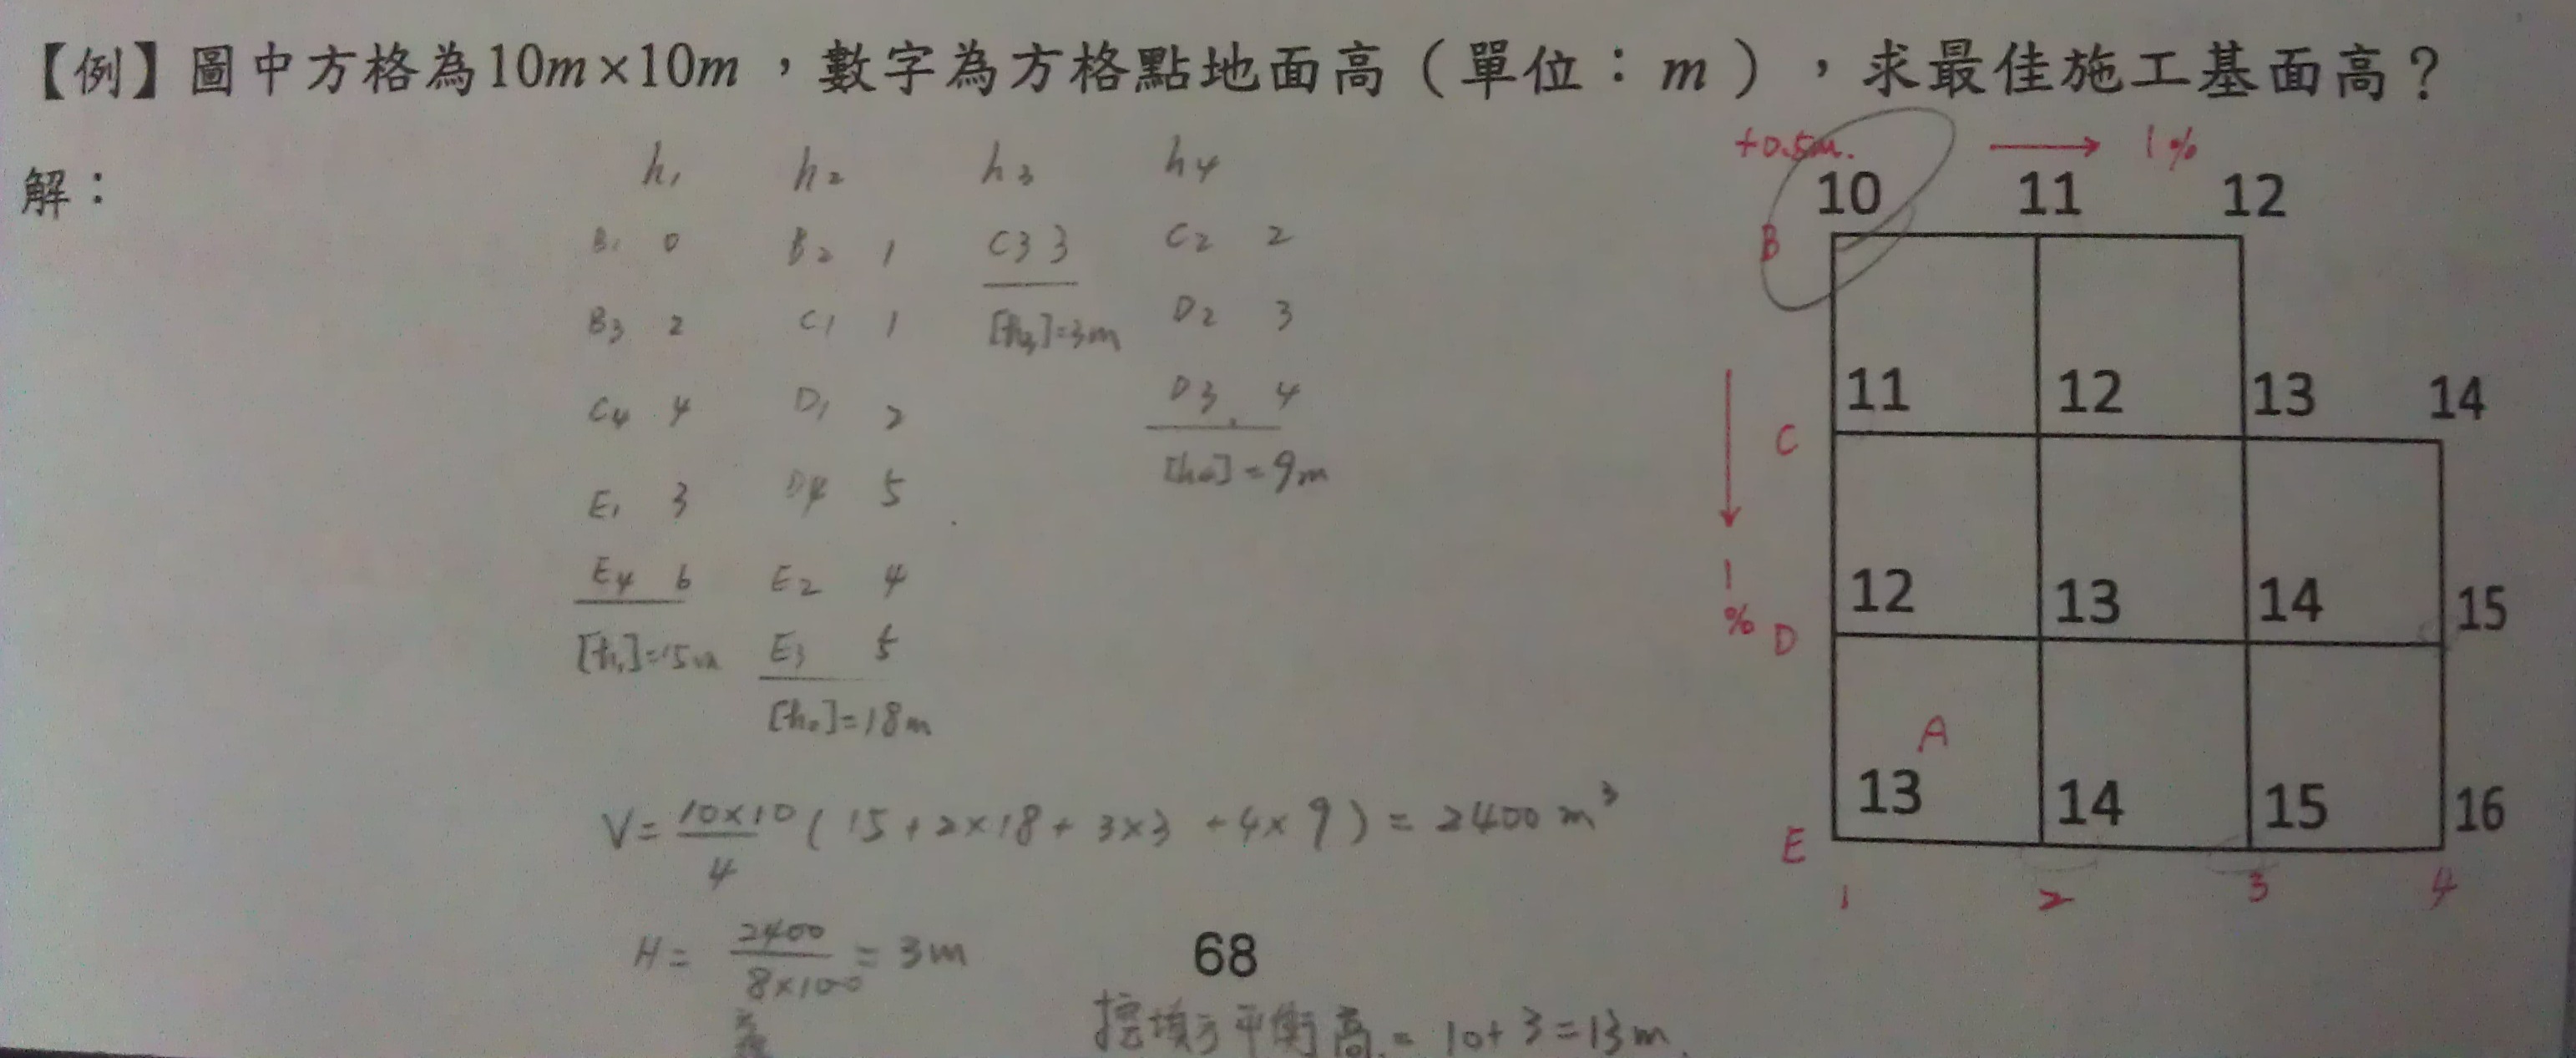 【例】圖中方格為10m×10m，數字為方格點地面高（單位：m），求最佳施工基面高？
解：
h₁ h₂ h₃ h₄
B₁ 0 B₂ 1 C3 3 C₂ 2
B₃ 2 C₁ 1 [h₃]=3m D₂ 3
C₄ 4 D₁ 2 D3 4
E₁ 3 D4 5 [h₄]=9m
E₄ 6 E₂ 4
[h₁]=15m E₃ 5
[h₂]=18m
V= 10×10/4 ( 15 + 2×18 + 3×3 + 4×9 ) = 2400 m³
H= 2400/8×100 = 3m
68
挖填方平衡高 = 10+3=13m.
+0.5m. → 1%
10 11 12
B
11 12 13 14
C
↓ 1%
12 13 14 15
D
A
13 14 15 16
E
1 2 3 4